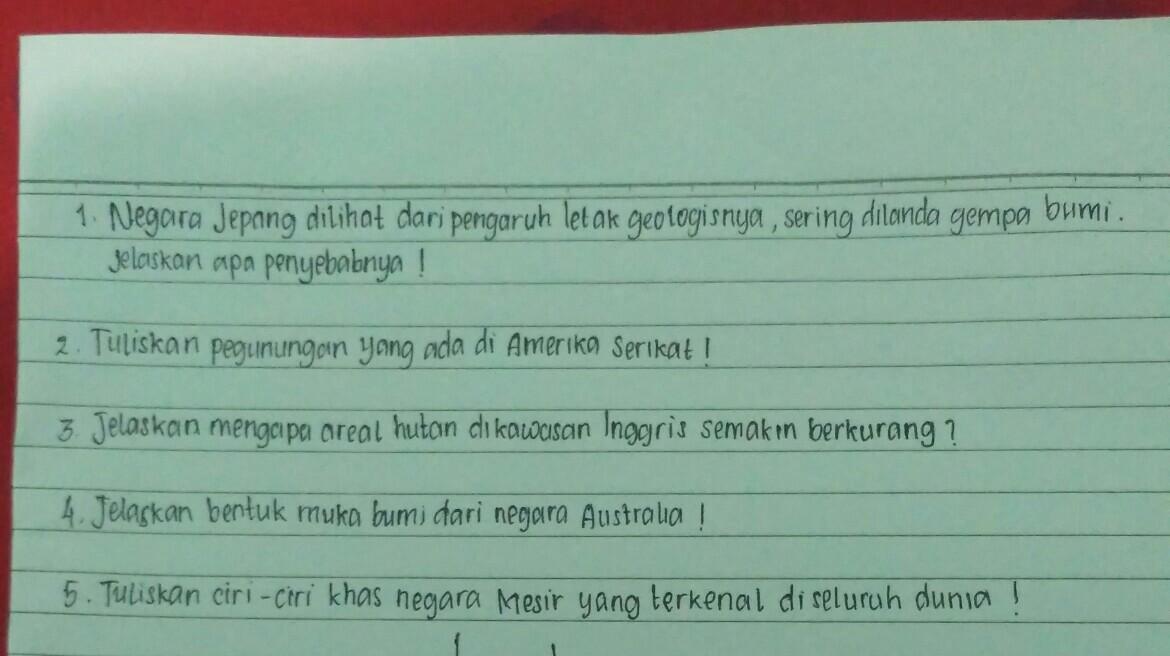 1. Negara Jepang dilihat dari pengaruh letak geologisnya, sering dilanda gempa bumi.
Jelaskan apa penyebabnya !
2. Tuliskan pegunungan yang ada di Amerika Serikat !
3. Jelaskan mengapa areal hutan dikawasan Inggris semakin berkurang ?
4. Jelaskan bentuk muka bumi dari negara Australia !
5. Tuliskan ciri-ciri khas negara Mesir yang terkenal diseluruh dunia !